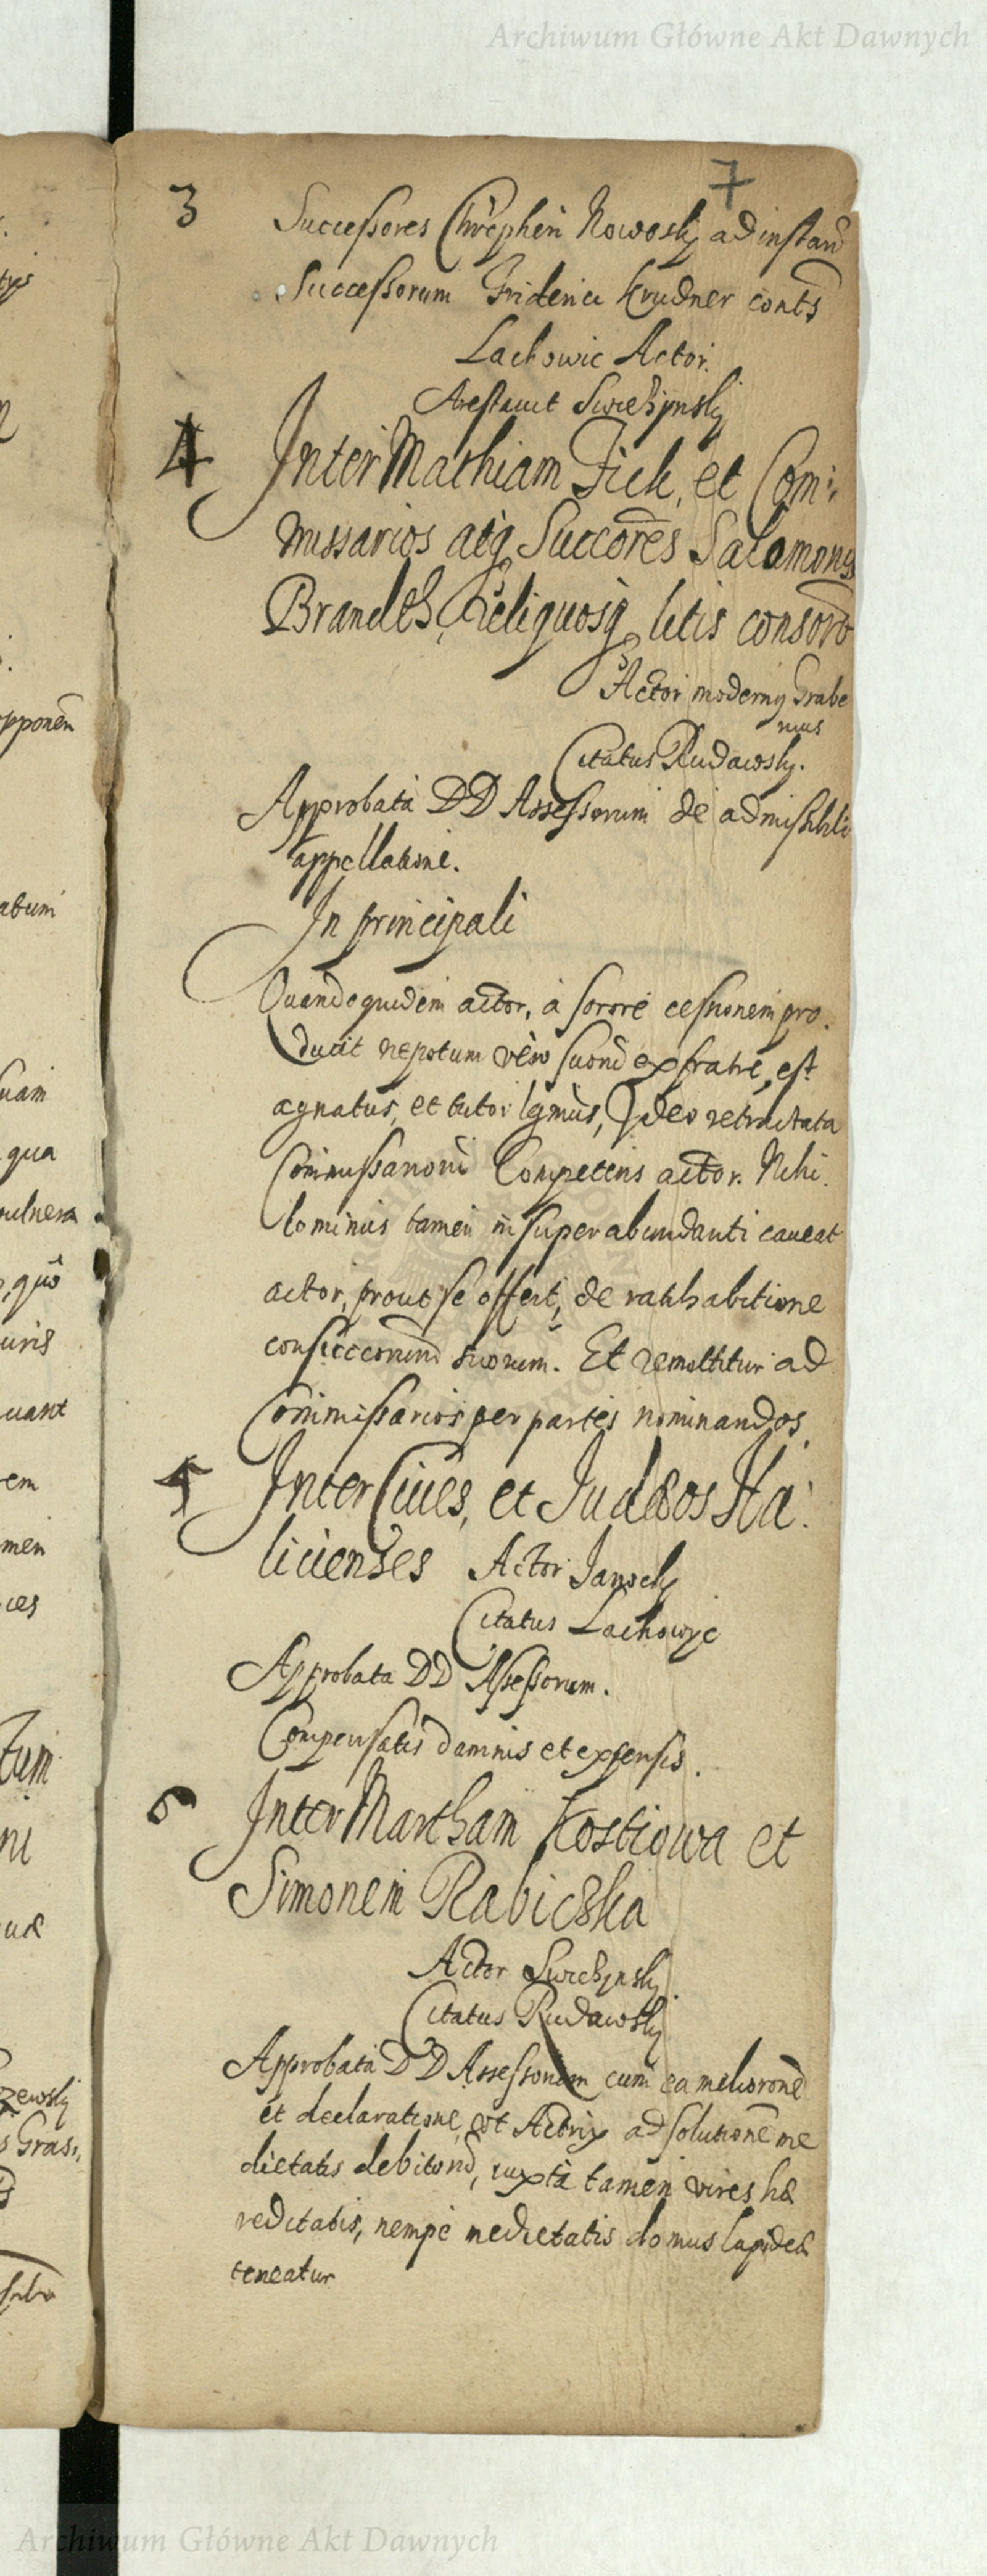 Archiwum Główne Akt Dawnych
7
3 Successores Chrepheri Nowosky ad instan
Successorum Friderici Krudner conts
Lachowic Actor.
Arestavit Swiehzynsky
4 Inter Mathiam Fick, et Com:
missarios atq Succores Salamonys
Brandth, Reliquosq litis consor
Actor modernq Grabe
nius
Citatus Rudawsky.
Approbata DD Assessorum de admissibili
appellatione.
In principali
Quandoquidem actor, à sorore cessionem pro.
ducit nepotum vero suorū ex fratre, est
agnatus, et tutor lgmus, Ideo retractata
Commissariorū Competens actor. Nihi.
lominus tamen in superabundanti caveat
actor, prout se offert, de ratihabitione
suorum. Et remittitur ad
Commissarios per partes nominandos.
5 Inter Cives, et Judæos Ha:
licienses Actor Jansely
Citatus Lachowic
Approbata DD Assessorum.
Compensatis damnis et expensis.
6 Inter Martham Kostiowa et
Simonem Rabiczka
Actor Swiehzynsky
Citatus Rudawsky
Approbata DD Assessorum cum ea meliorone
et declaratione, ut Actrix ad solutionē me
dietatis debitorū, iuxta tamen vires hæ
reditatis, nempe medietatis domus lapideæ
teneatur
tys
pponen
atum
uam
qua
vulnera
quo
uris
uant
rem
men
ces
tum
ni
uæ
zewsky
Gras:
Archiwum Główne Akt Dawnych